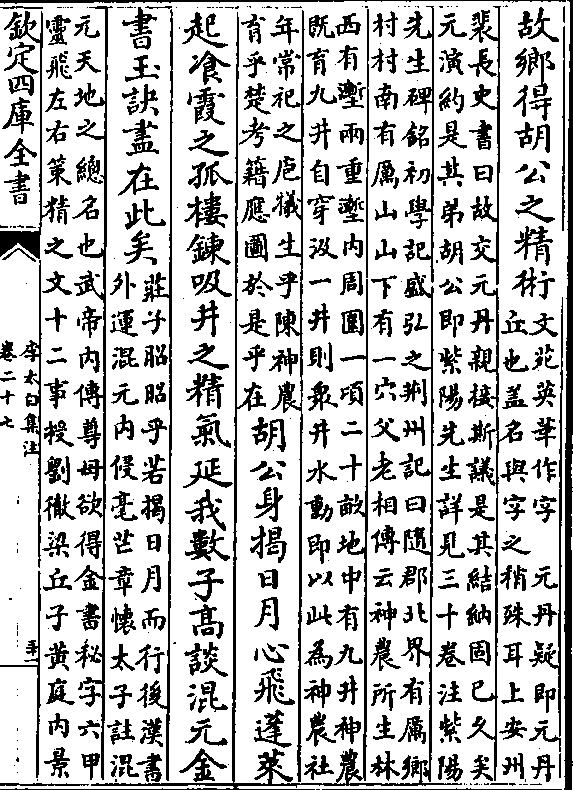 故鄉得胡公之精術
文苑英華作字　元丹疑即元丹
丘也蓋名與字之稍殊耳上安州
裴長史書曰故交元丹親接斯議是其結納固已久矣
元演約是其弟胡公即紫陽先生詳見三十卷注紫陽
先生碑銘初學記盛弘之荆州記曰隨郡北界有厲鄉
村村南有厲山山下有一穴父老相傳云神農所生林
西有壍兩重壍内周圍一頃二十畝地中有九井神農
既育九井自穿汲一井則衆井水動即以此為神農社
年常祀之庖犧生乎陳神農
育乎楚考籍應圖於是乎在
胡公身揭日月心飛蓬萊
起飡霞之孤樓鍊吸井之精氣延我數子高談混元金
書玉訣盡在此矣
莊子昭昭乎若揭日月而行後漢書
外運混元内侵毫芒章懷太子註混
元天地之總名也武帝内傳尊母欲得金書秘字六甲
靈飛左右策精之文十二事授劉徹梁丘子黃庭内景
欽定四庫全書
李太白集注
卷二十七